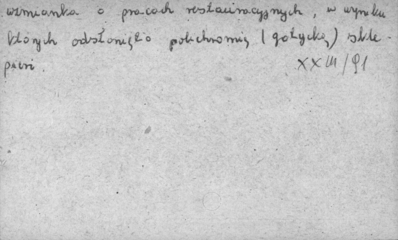 wzmianka o pracach restauracyjnych, w wyniku
których odsłonięto polichromię (gotycką) skle-
pień.
XXIII/91